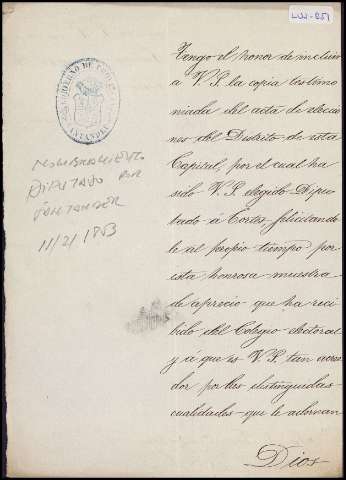 LUIS-251
GOBIERNO DE
SANTANDER
NOMBRAMIENTO
DIPUTADO POR
SANTANDER
11/2/1853
Tengo el honor de incluir
a V. S. la copia testimo
niada del acta de eleccio
nes del Distrito de esta
Capital, por el cual ha
sido V. S. elegido Dipu
tado á Cortes felicitando
le al propio tiempo por
esta honrosa muestra
de aprecio que ha reci
bido del Colegio electoral
y á que es V. S. tan acree
dor por las distinguidas
cualidades que le adornan
Dios